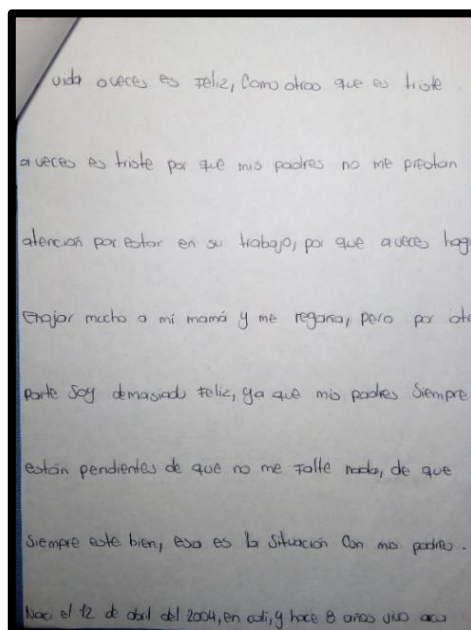 vida aveces es feliz, como otras que es triste
aveces es triste por que mis padres no me prestan
atención por estar en su trabajo, por que aveces hago
enojar mucho a mi mamá y me regaña, pero por otra
parte soy demasiado feliz, ya que mis padres siempre
están pendientes de que no me falte nada, de que
siempre este bien, esa es la situación con mis padres.
Naci el 12 de abril del 2004, en cali, y hace 8 años vivo aca